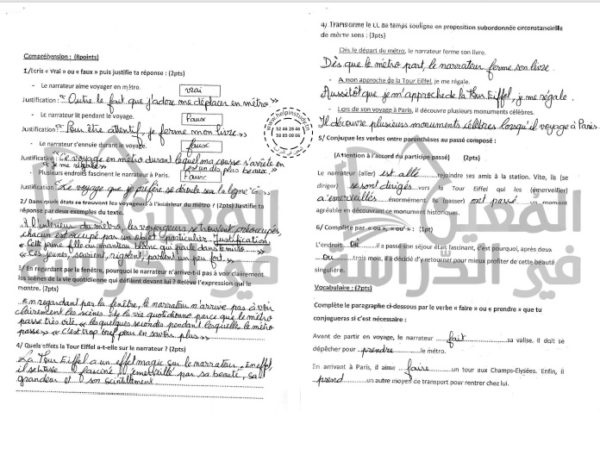 Compréhension : (8points)
1/Ecris « Vrai » ou « faux » puis justifie ta réponse : (2pts)
- Le narrateur aime voyager en métro. vrai
Justification : « Outre le fait que j'adore me déplacer en métro »
- Le narrateur lit pendant le voyage. Faux
Justification : « Pour être attentif, je ferme mon livre »
- Le narrateur s'ennuie durant le voyage. faux
Justification : « Le voyage en métro durant lequel ma course s'arrête en
« je me régale »
- Plusieurs endroits fascinent le narrateur à Paris. Faux
Justification : « Le voyage que je préfère se déroule sur la ligne 6 »
2/ Dans quels états se trouvent les voyageurs à l'intérieur du métro ? (2pts) Justifie ta
réponse par deux exemples du texte.
A l'intérieur du métro, les voyageurs se trouvent
chacun est occupé par un objet quotidien. Justification
« Cette jeune fille au manteau blanc qui parle dans le métro »
« Ces jeunes, sourient, rigolent, parlent un peu fort »
3/ En regardant par la fenêtre, pourquoi le narrateur n'arrive-t-il pas à voir clairement
les scènes de la vie quotidienne qui défilent devant lui ? Relève l'expression qui le
montre. (2pts)
En regardant par la fenêtre, le narrateur n'arrive pas à voir
clairement les scènes de la vie quotidienne parce que le métro
passe très vite « les quelques secondes pendant lesquelles le métro
passe » « C'est trop bref pour en savoir plus »
4/ Quels effets la Tour Eiffel a-t-elle sur le narrateur ? (2pts)
La Tour Eiffel a un effet magique sur le narrateur. En effet,
il est fasciné émerveillé par sa beauté, sa
grandeur et son scintillement
4/ Transforme le CC de temps souligné en proposition subordonnée circonstancielle
de même sens : (3pts)
Dès le départ du métro, le narrateur ferme son livre.
Dès que le métro part, le narrateur ferme son livre.
- A mon approche de la Tour Eiffel, je me régale.
Aussitôt que je m'approche de la Tour Eiffel, je me régale.
- Lors de son voyage à Paris, il découvre plusieurs monuments célèbres.
Il découvre plusieurs monuments célèbres lorsqu'il voyage à Paris.
5/ Conjugue les verbes entre parenthèses au passé composé :
(Attention à l'accord du participe passé) (2pts)
Le narrateur (aller) est allé rejoindre ses amis à la station. Vite, ils (se
diriger) se sont dirigés vers la Tour Eiffel qui les (émerveiller)
a émerveillés énormément. Ils (passer) ont passé un moment
agréable en découvrant ce monument historique.
6/ Complète par « ou », « où » : (1pt)
L'endroit où il a passé son séjour était fascinant, c'est pourquoi, après deux
ou trois mois, il a décidé d'y retourner pour mieux profiter de cette splendide
découverte.
Vocabulaire : (2pts)
Complète le paragraphe ci-dessous par le verbe « faire » ou « prendre » que tu
conjugueras si c'est nécessaire :
Avant de partir en voyage, le narrateur fait sa valise. Il doit se
dépêcher pour prendre le métro.
En arrivant à Paris, il aime faire un tour aux Champs-Elysées. Enfin, il
prend un autre moyen de transport pour rentrer chez lui.
المعين
في الدراسة